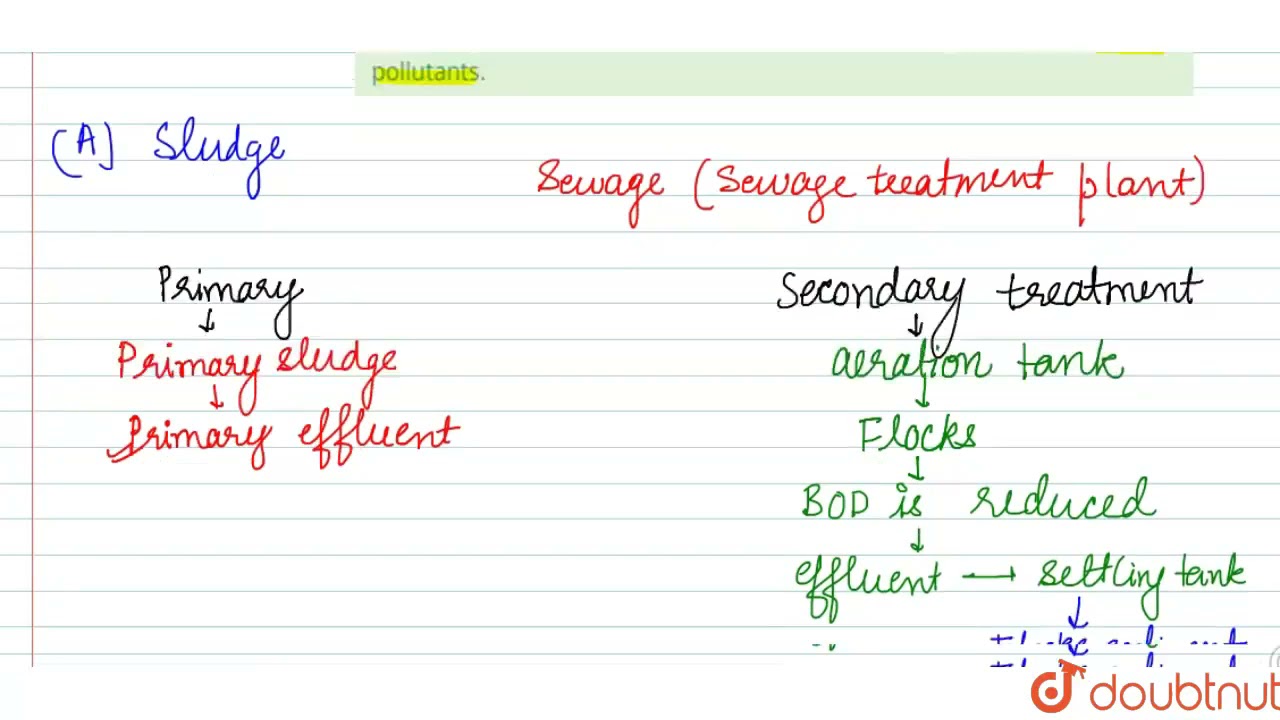 pollutants.
(A) Sludge
Sewage (Sewage treatment plant)
Primary
↓
Primary sludge
↓
Primary effluent
Secondary treatment
↓
aeration tank
↓
Flocks
↓
BOD is reduced
↓
effluent → settling tank
↓
doubtnut